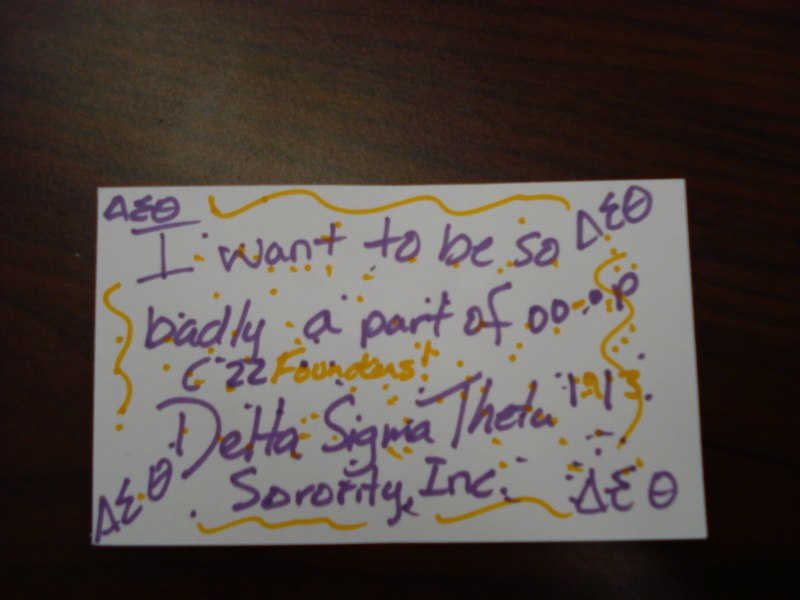 ΔΣΘ
I want to be so ΔΣΘ
badly a part of oo-oop
22 Founders!
Delta Sigma Theta 1913
ΔΣΘ Sorority, Inc. ΔΣΘ